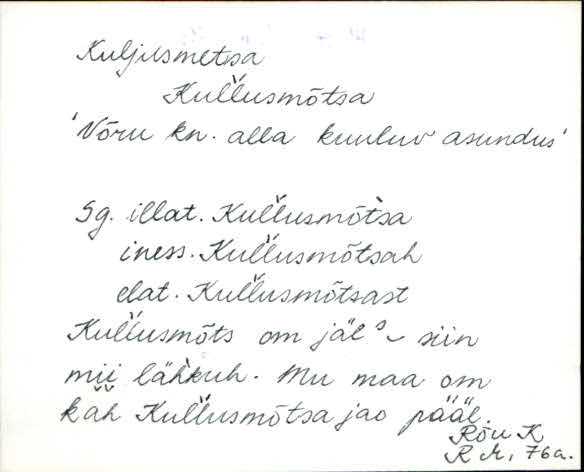 Kuljusmetsa
Kuľľusmõtsa
'Võru kn. alla kuuluv asundus'
Sg. illat. Kuľľusmõt̀sa
iness. Kuľľusmõtsah
elat. Kuľľusmõtsast
Kuľľusmõts om jäl siin
mii läh̀kuh. Mu maa om
kah Kuľľusmõtsa jao pääl.
Rõu K
R M, 76a.